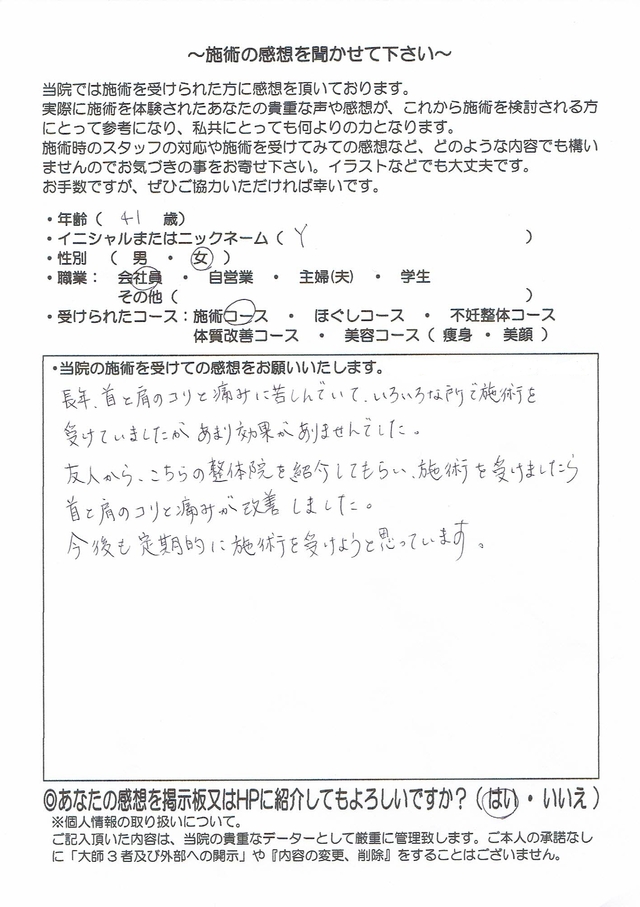 ～施術の感想を聞かせて下さい～
当院では施術を受けられた方に感想を頂いております。
実際に施術を体験されたあなたの貴重な声や感想が、これから施術を検討される方
にとって参考になり、私共にとっても何よりの力となります。
施術時のスタッフの対応や施術を受けてみての感想など、どのような内容でも構い
ませんのでお気づきの事をお寄せ下さい。イラストなどでも大丈夫です。
お手数ですが、ぜひご協力いただければ幸いです。
・年齢（ 41 歳）
・イニシャルまたはニックネーム（ Y ）
・性別 （ 男 ・ 女 ）
・職業： 会社員 ・ 自営業 ・ 主婦(夫) ・ 学生
その他（ ）
・受けられたコース：施術コース ・ ほぐしコース ・ 不妊整体コース
体質改善コース ・ 美容コース（ 痩身 ・ 美顔 ）
・当院の施術を受けての感想をお願いいたします。
長年、首と肩のコリと痛みに苦しんでいて、いろいろな所で施術を
受けていましたが あまり効果がありませんでした。
友人から、こちらの整体院を紹介してもらい、施術を受けましたら
首と肩のコリと痛みが改善しました。
今後も定期的に施術を受けようと思っています。
◎あなたの感想を掲示板又はHPに紹介してもよろしいですか？（ はい ・ いいえ ）
※個人情報の取り扱いについて。
ご記入頂いた内容は、当院の貴重なデーターとして厳重に管理致します。ご本人の承諾なし
に「大師３者及び外部への開示」や『内容の変更、削除』をすることはございません。